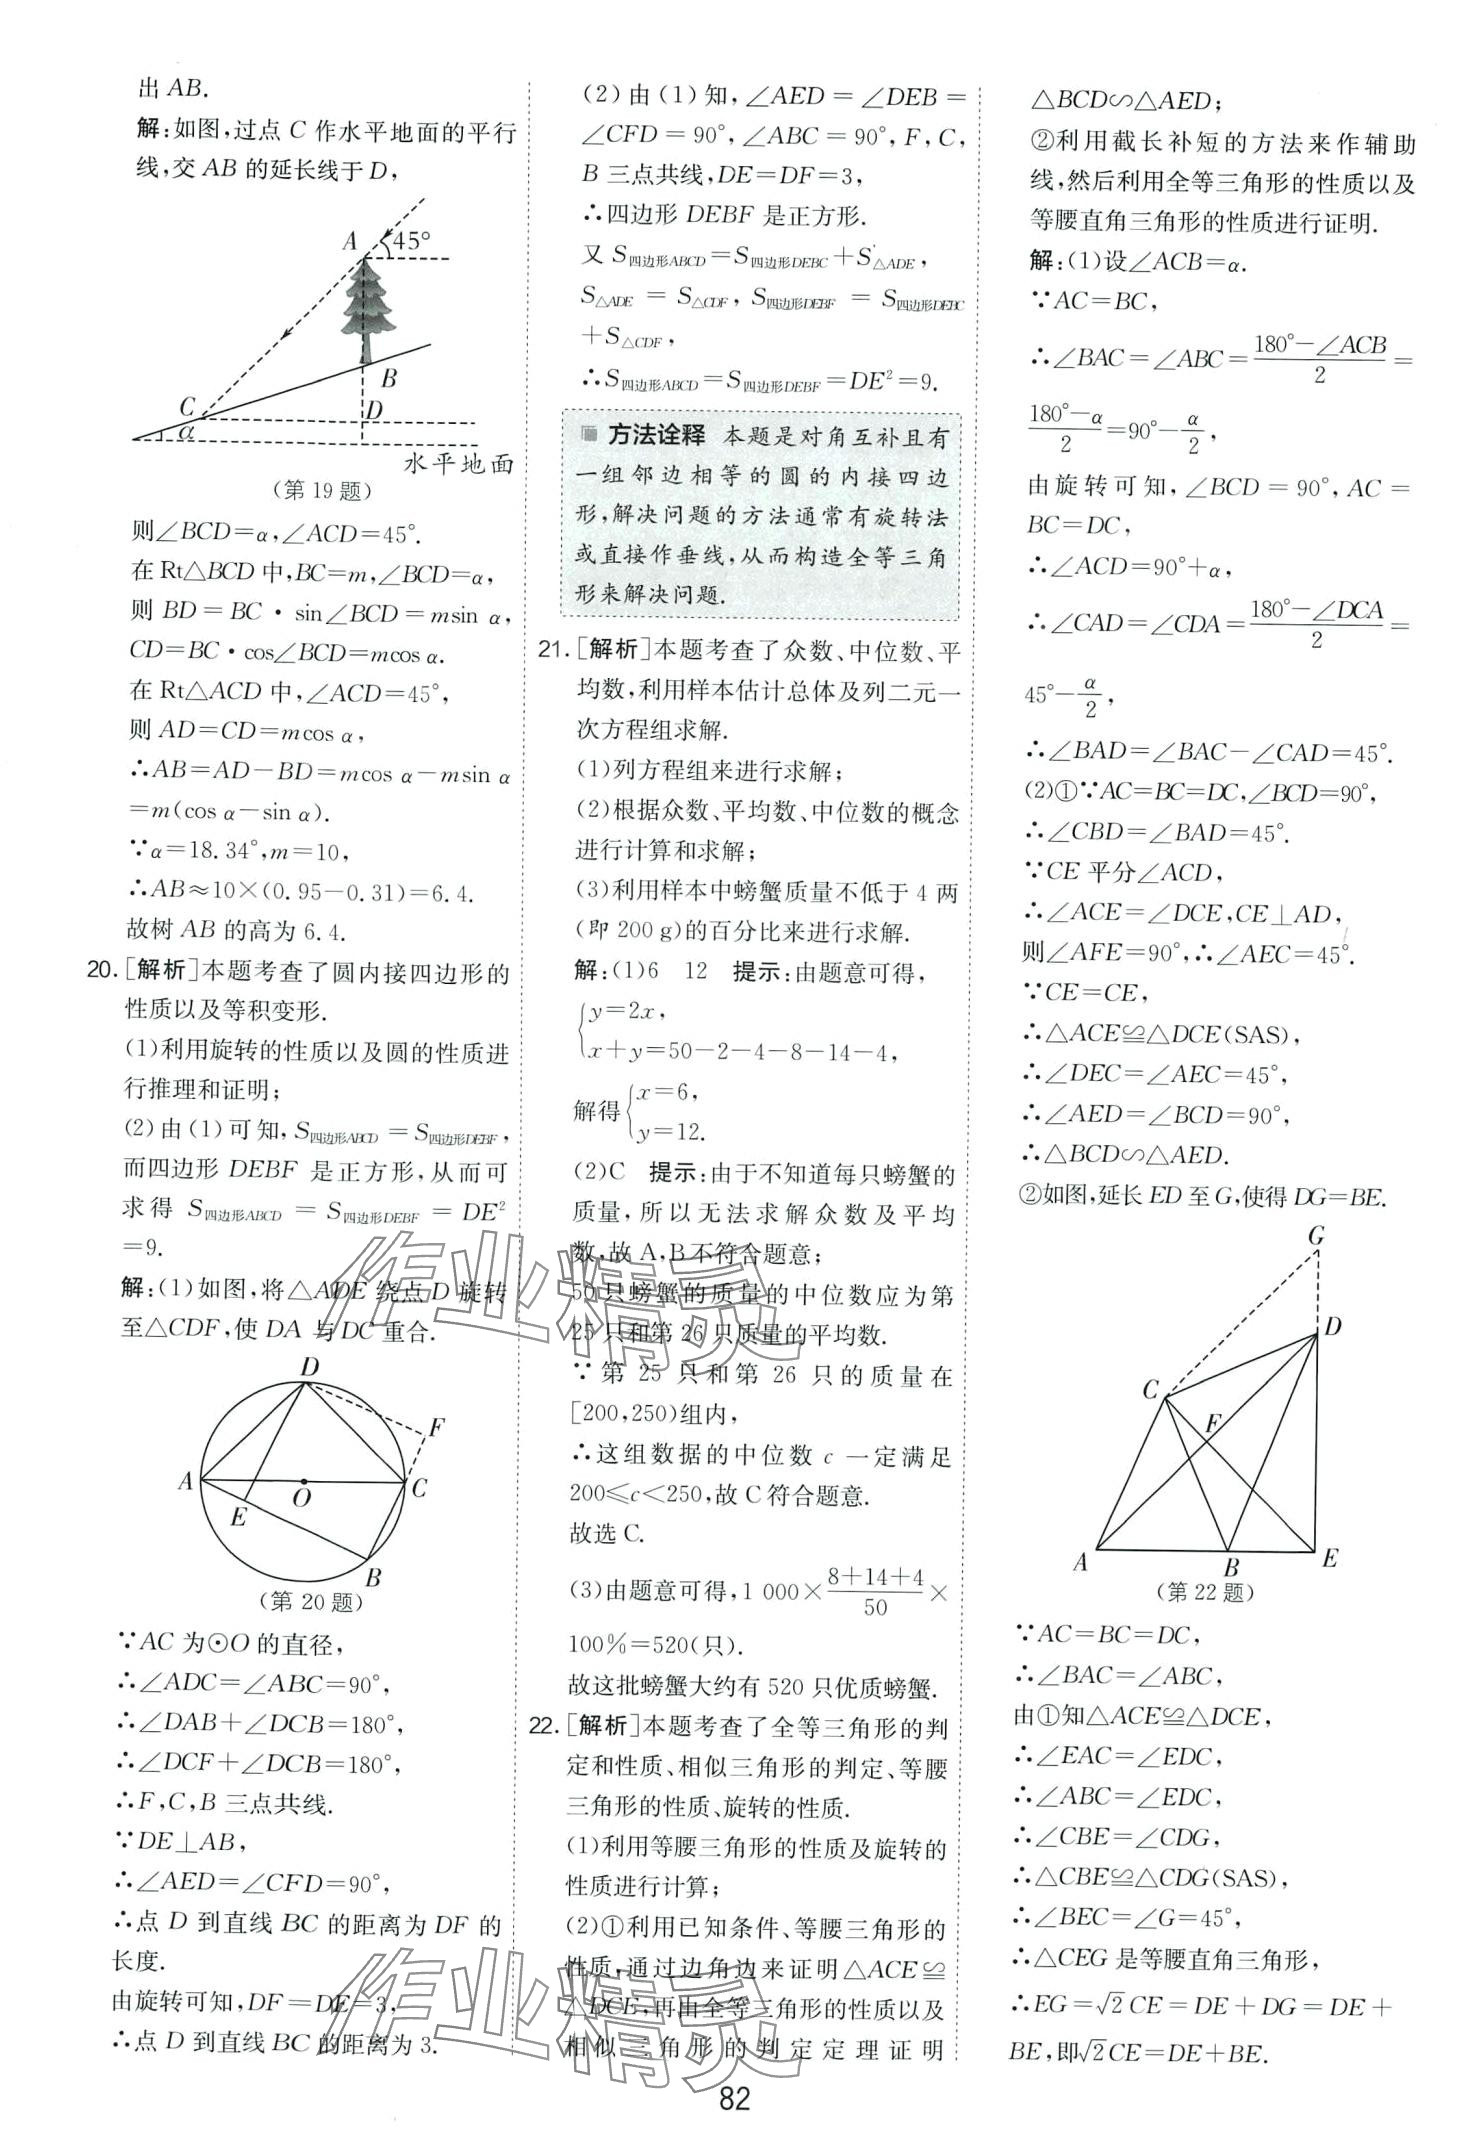 出 AB.
解:如图,过点 C 作水平地面的平行
线,交 AB 的延长线于 D,
A
45°
B
C
D
α
水平地面
(第 19 题)
则∠BCD=α,∠ACD=45°.
在 Rt△BCD 中,BC=m,∠BCD=α,
则 BD=BC·sin∠BCD=msin α,
CD=BC·cos∠BCD=mcos α.
在 Rt△ACD 中,∠ACD=45°,
则 AD=CD=mcos α,
∴AB=AD-BD=mcos α-msin α
=m(cos α-sin α).
∵α=18.34°,m=10,
∴AB≈10×(0.95-0.31)=6.4.
故树 AB 的高为 6.4.
20. [解析]本题考查了圆内接四边形的
性质以及等积变形.
(1)利用旋转的性质以及圆的性质进
行推理和证明;
(2)由(1)可知,S四边形ABCD=S四边形DEBF,
而四边形 DEBF 是正方形,从而可
求得 S四边形ABCD=S四边形DEBF=DE²
=9.
解:(1)如图,将△ADE 绕点 D 旋转
至△CDF,使 DA 与 DC 重合.
D
F
A
O
C
E
B
(第 20 题)
∵AC 为⊙O 的直径,
∴∠ADC=∠ABC=90°,
∴∠DAB+∠DCB=180°,
∴∠DCF+∠DCB=180°,
∴F,C,B 三点共线.
∵DE⊥AB,
∴∠AED=∠CFD=90°,
∴点 D 到直线 BC 的距离为 DF 的
长度.
由旋转可知,DF=DE=3,
∴点 D 到直线 BC 的距离为 3.
(2)由(1)知,∠AED=∠DEB=
∠CFD=90°,∠ABC=90°,F,C,
B 三点共线,DE=DF=3,
∴四边形 DEBF 是正方形.
又 S四边形ABCD=S四边形DEBC+S△ADE,
S△ADE=S△CDF,S四边形DEBF=S四边形DEBC
+S△CDF,
∴S四边形ABCD=S四边形DEBF=DE²=9.
方法诠释 本题是对角互补且有
一组邻边相等的圆的内接四边
形,解决问题的方法通常有旋转法
或直接作垂线,从而构造全等三角
形来解决问题.
21. [解析]本题考查了众数、中位数、平
均数,利用样本估计总体及列二元一
次方程组求解.
(1)列方程组来进行求解;
(2)根据众数、平均数、中位数的概念
进行计算和求解;
(3)利用样本中螃蟹质量不低于 4 两
(即 200 g)的百分比来进行求解.
解:(1)6 12 提示:由题意可得,
{y=2x,
x+y=50-2-4-8-14-4,
解得{x=6,
y=12.
(2)C 提示:由于不知道每只螃蟹的
质量,所以无法求解众数及平均
数,故 A,B 不符合题意;
50 只螃蟹的质量的中位数应为第
25 只和第 26 只质量的平均数.
∵第 25 只和第 26 只的质量在
[200,250)组内,
∴这组数据的中位数 c 一定满足
200≤c<250,故 C 符合题意.
故选 C.
(3)由题意可得,1 000×(8+14+4)/50×
100%=520(只).
故这批螃蟹大约有 520 只优质螃蟹.
22. [解析]本题考查了全等三角形的判
定和性质、相似三角形的判定、等腰
三角形的性质、旋转的性质.
(1)利用等腰三角形的性质及旋转的
性质进行计算;
(2)①利用已知条件、等腰三角形的
性质,通过边角边来证明△ACE≌
△DCE,再由全等三角形的性质以及
相似三角形的判定定理证明
△BCD∽△AED;
②利用截长补短的方法来作辅助
线,然后利用全等三角形的性质以及
等腰直角三角形的性质进行证明.
解:(1)设∠ACB=α.
∵AC=BC,
∴∠BAC=∠ABC=(180°-∠ACB)/2=
(180°-α)/2=90°-α/2,
由旋转可知,∠BCD=90°,AC=
BC=DC,
∴∠ACD=90°+α,
∴∠CAD=∠CDA=(180°-∠DCA)/2=
45°-α/2,
∴∠BAD=∠BAC-∠CAD=45°.
(2)①∵AC=BC=DC,∠BCD=90°,
∴∠CBD=∠BAD=45°.
∵CE 平分∠ACD,
∴∠ACE=∠DCE,CE⊥AD,
则∠AFE=90°,∴∠AEC=45°.
∵CE=CE,
∴△ACE≌△DCE(SAS),
∴∠DEC=∠AEC=45°,
∴∠AED=∠BCD=90°,
∴△BCD∽△AED.
②如图,延长 ED 至 G,使得 DG=BE.
G
D
C
F
A
B
E
(第 22 题)
∵AC=BC=DC,
∴∠BAC=∠ABC,
由①知△ACE≌△DCE,
∴∠EAC=∠EDC,
∴∠ABC=∠EDC,
∴∠CBE=∠CDG,
∴△CBE≌△CDG(SAS),
∴∠BEC=∠G=45°,
∴△CEG 是等腰直角三角形,
∴EG=√2CE=DE+DG=DE+
BE,即√2CE=DE+BE.
作业精灵
作业精灵
82